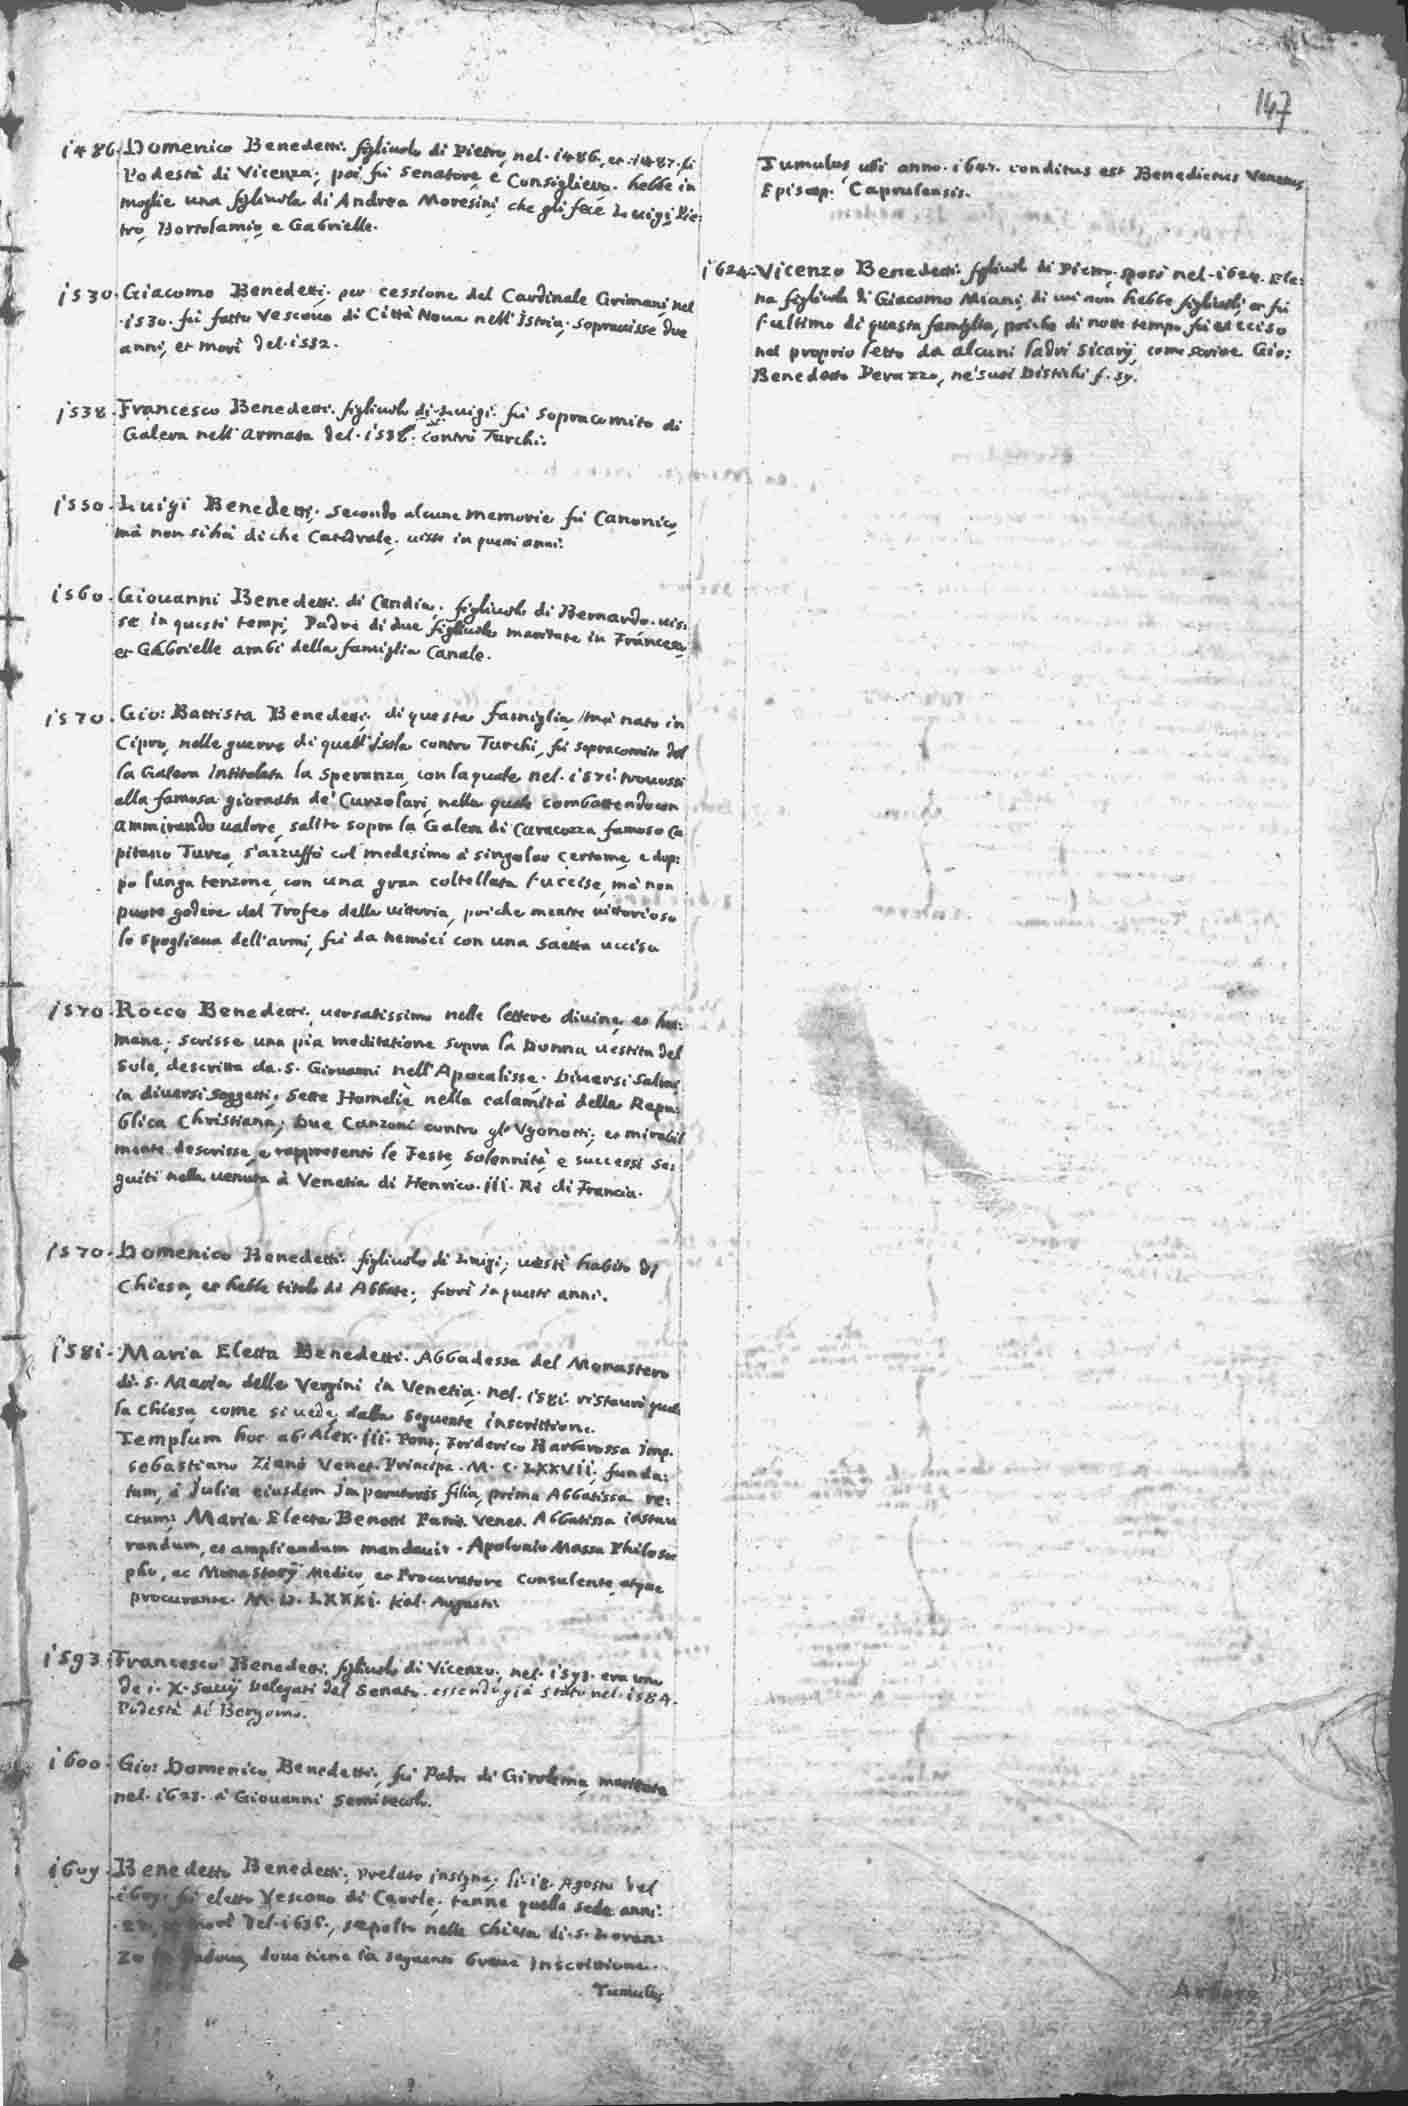 147
1486. Domenico Benedetti. figliuolo di Pietro, nel. 1486. et. 1487. fù
Podestà di Vicenza; poi fù Senatore, e Consigliero. hebbe in
moglie una figliuola di Andrea Moresini, che gli fece Luigi, Pie:
tro, Bortolamio, e Gabrielle.
1530. Giacomo Benedetti. per cessione del Cardinale Grimani, nel
.1530. fù fatto Vescouo di Città Noua nell'Istria. soprauisse due
anni, et morì del. 1532.
1538. Francesco Benedetti. figliuolo di Luigi. fù sopracomito di
Galera nell'armata del. 1538. contro Turchi.
1550. Luigi Benedetti. secondo alcune memorie fù Canonico,
mà non si hà di che Catedrale. uisse in questi anni.
1560. Giouanni Benedetti. di Candia. figliuolo di Bernardo. uis:
se in questi tempi, Padre di due figliuole maritate in Francesco,
et Gabrielle ambi della famiglia Canale.
1570. Gio: Battista Benedetti, di questa famiglia, mà nato in
Cipro, nelle guerre di quell'Isola contro Turchi, fù sopracomito del
la Galera intitolata la Speranza, con la quale nel. 1571. trouossi
alla famosa giornata de' Curzolari, nella quale combattendo con
ammirando ualore, salito sopra la Galera di Caracozza famoso Ca
pitano Turco, s'azzuffò col medesimo à singolar certame, e dop:
po lunga tenzone, con una gran coltellata l'uccise, mà non
puote godere del Trofeo della uittoria, poiche mentre uittorioso
lo spogliaua dell'armi, fù da nemici con una saetta ucciso
1570. Rocco Benedetti, uersatissimo nelle lettere diuine, et hu:
mane; scrisse una pia meditatione sopra la Donna uestita del
Sole, descritta da. S. Giouanni nell'Apocalisse. Diuersi Salmi
in diuersi soggetti; Sette Homelie nella calamità della Repu:
blica Christiana; Due Canzoni contro gl'Vgonotti; et mirabil
mente descrisse, e rappresentò le Feste, solennità, e successi se:
guiti nella uenuta à Venetia di Henrico. III. Rè di Francia.
1570. Domenico Benedetti. figliuolo di Luigi; uestì habito di
Chiesa, et hebbe titolo di Abbate; fiorì in questi anni.
1581. Maria Eletta Benedetti. Abbadessa del Monastero
di. S. Maria delle Vergini in Venetia. nel. 1581. ristaurò quel:
la Chiesa, come si uede, dalla seguente inscrittione.
Templum hoc ab. Alex. III. Pont. Friderico Barbarossa Imp.
Sebastiano Ziano Venet. Principe. M. C. LXXVII. funda:
tum, à Julia eiusdem Imperatoris filia, prima Abbatissa re:
ctum: Maria Electa Beneti Patrit. Venet. Abbatissa instau
randum, et ampliandum mandauit. Apolonio Massa Philoso
pho, ac Monasterij Medico, et Procuratore consulente, atque
procurante. M. D. LXXXI. Kal. Augusti.
1593. Francesco Benedetti. figliuolo di Vicenzo, nel. 1593. era uno
de i. X. Sauij Delegati del Senato. essendo già stato nel. 1584.
Podestà di Bergomo.
1600. Gio: Domenico Benedetti, fù Padre di Girolema, maritata
nel. 1623. à Giouanni Semitecolo.
1609. Benedetto Benedetti; prelato insigne; li. 18. Agosto del
.1609. fù eletto Vescouo di Caorle; tenne quella sede anni.
morì del. 1636., sepolto nella Chiesa di. S. Loren:
zo in Padoua, doue tiene la seguente breue inscrittione.
Tumulus
Tumulus ubi anno. conditus est Benedictus Venetus
Episcop. Caprulensis.
1624. Vicenzo Benedetti. figliuolo di Pietro, sposò nel. 1624. Ele:
na figliuola di Giacomo Miani, di cui non hebbe figliuoli, et fù
l'ultimo di questa famiglia, poiche di notte tempo fù ucciso
nel proprio letto da alcuni ladri sicarij, come scriue Gio:
Benedetto Perazzo, ne' suoi Distichi f. 59.